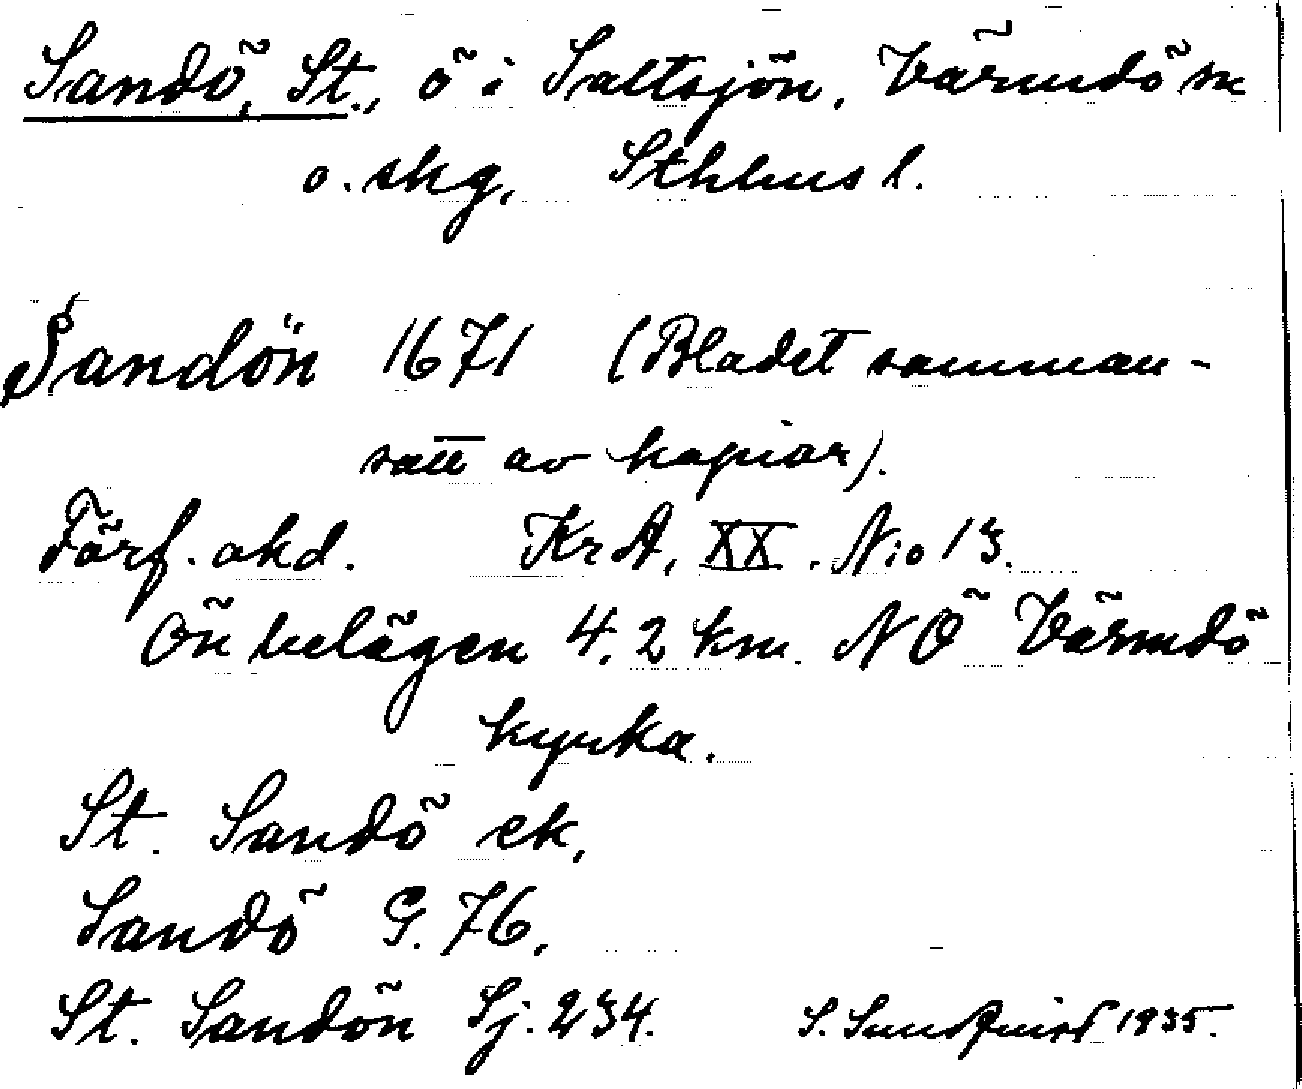 Sandö, St., ö i Saltsjön, Värmdö sn
o. skg, Sthlms l.
Sandön 1671 (Bladet samman-
satt av kopior).
Förf. okd. Kr A, XX. N:o 13.
Ön belägen 4.2 km. NÖ Värmdö
kyrka.
St. Sandö ek,
Sandö G. 76,
St. Sandön Sj. 234. S. Sundquist 1935.